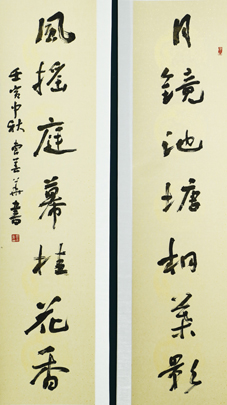 月鏡池塘桐葉影
風搖庭幕桂花香
壬寅中秋
書